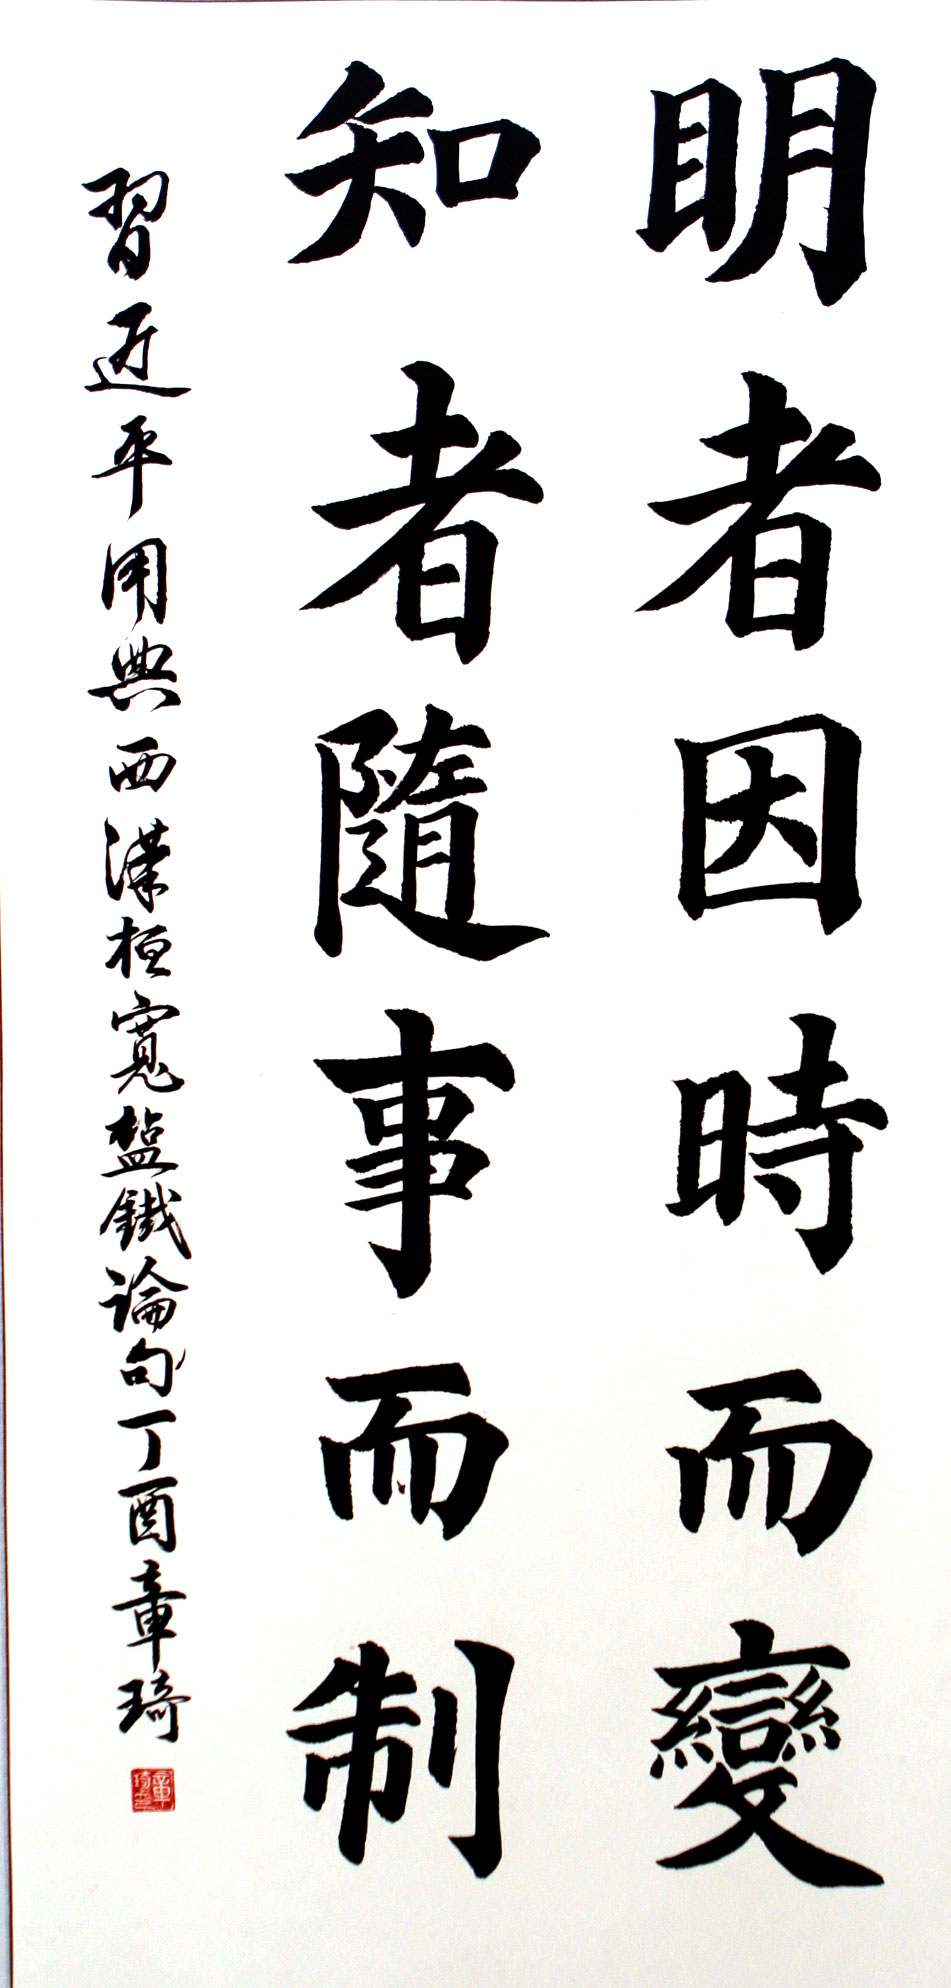 明者因時而變
知者隨事而制
習近平用典西漢桓寬盬鐵論句丁酉章琦
章琦之印